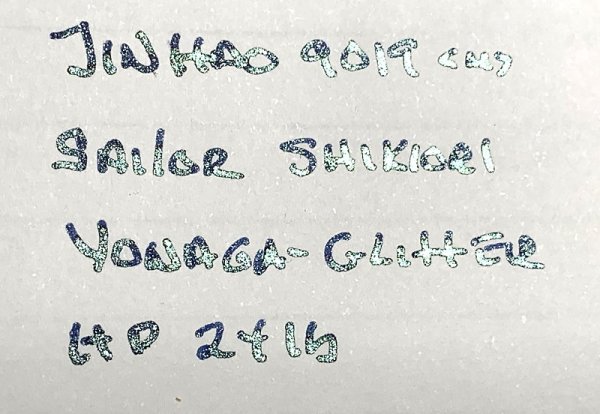 JINHAO 9019 <M>
SAILOR SHIKIORI
YONAGA-GLITTER
HP 24lb